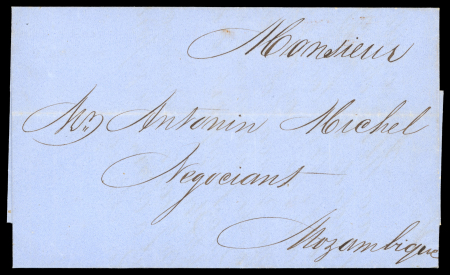 Monsieur
Mr. Antonin Michel
Negociant
Mozambique